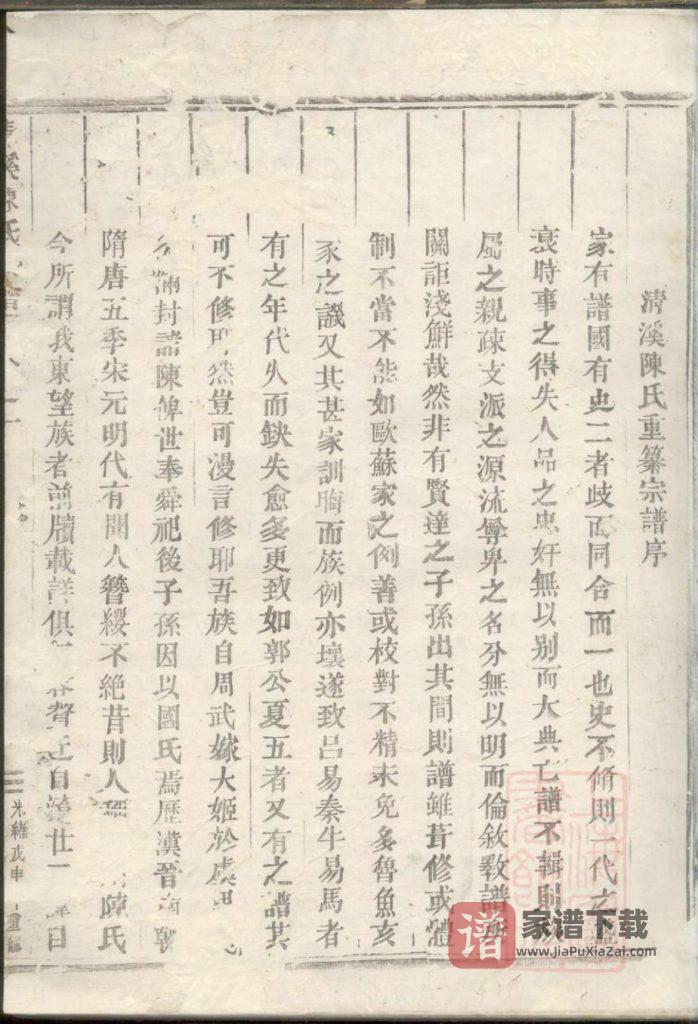 清溪陳氏重纂宗譜序
家有譜國有史二者歧而同合而一也史不脩則代之
衰時事之得失人品之忠奸無以別而大典亡譜不輯則
屬之親疎支派之源流尊卑之名分無以明而倫敘斁譜
關詎淺鮮哉然非有賢達之子孫出其間則譜雖葺修或體
制不當不能如歐蘇家之例善或校對不精未免多魯魚亥
豕之譏又其甚家訓晦而族例亦壞遂致呂易秦牛易馬者
有之年代久而缺失愈多更致如郭公夏五者又有之譜其
可不修耶然豈可漫言修耶吾族自周武嫁大姬於虞
滿封諸陳俾世奉舜祀後子孫因以國氏焉歷漢晉南朝
隋唐五季宋元明代有聞人簪纓不絕昔則人 陳氏
今所謂我東望族者前牒載詳俱 自 世
溪陳氏
光緒戊申 重修
家谱下载
www.JiaPuXiaZai.com
谱